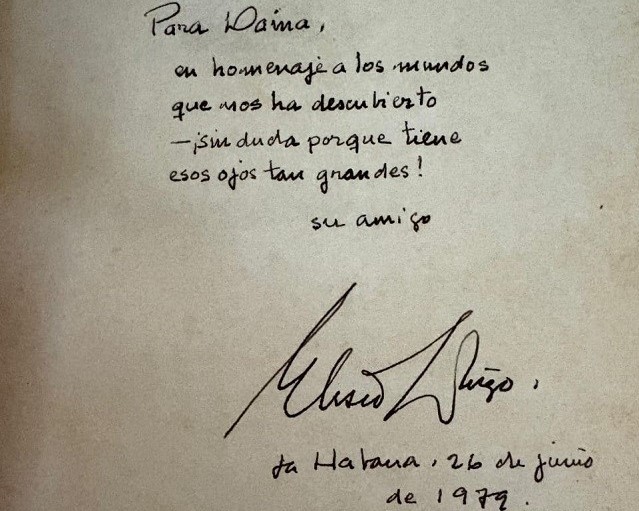 Para Daina,
en homenaje a los mundos
que nos ha descubierto
—¡sin duda porque tiene
esos ojos tan grandes!
su amigo
Eliseo Diego.
La Habana, 26 de junio
de 1979.